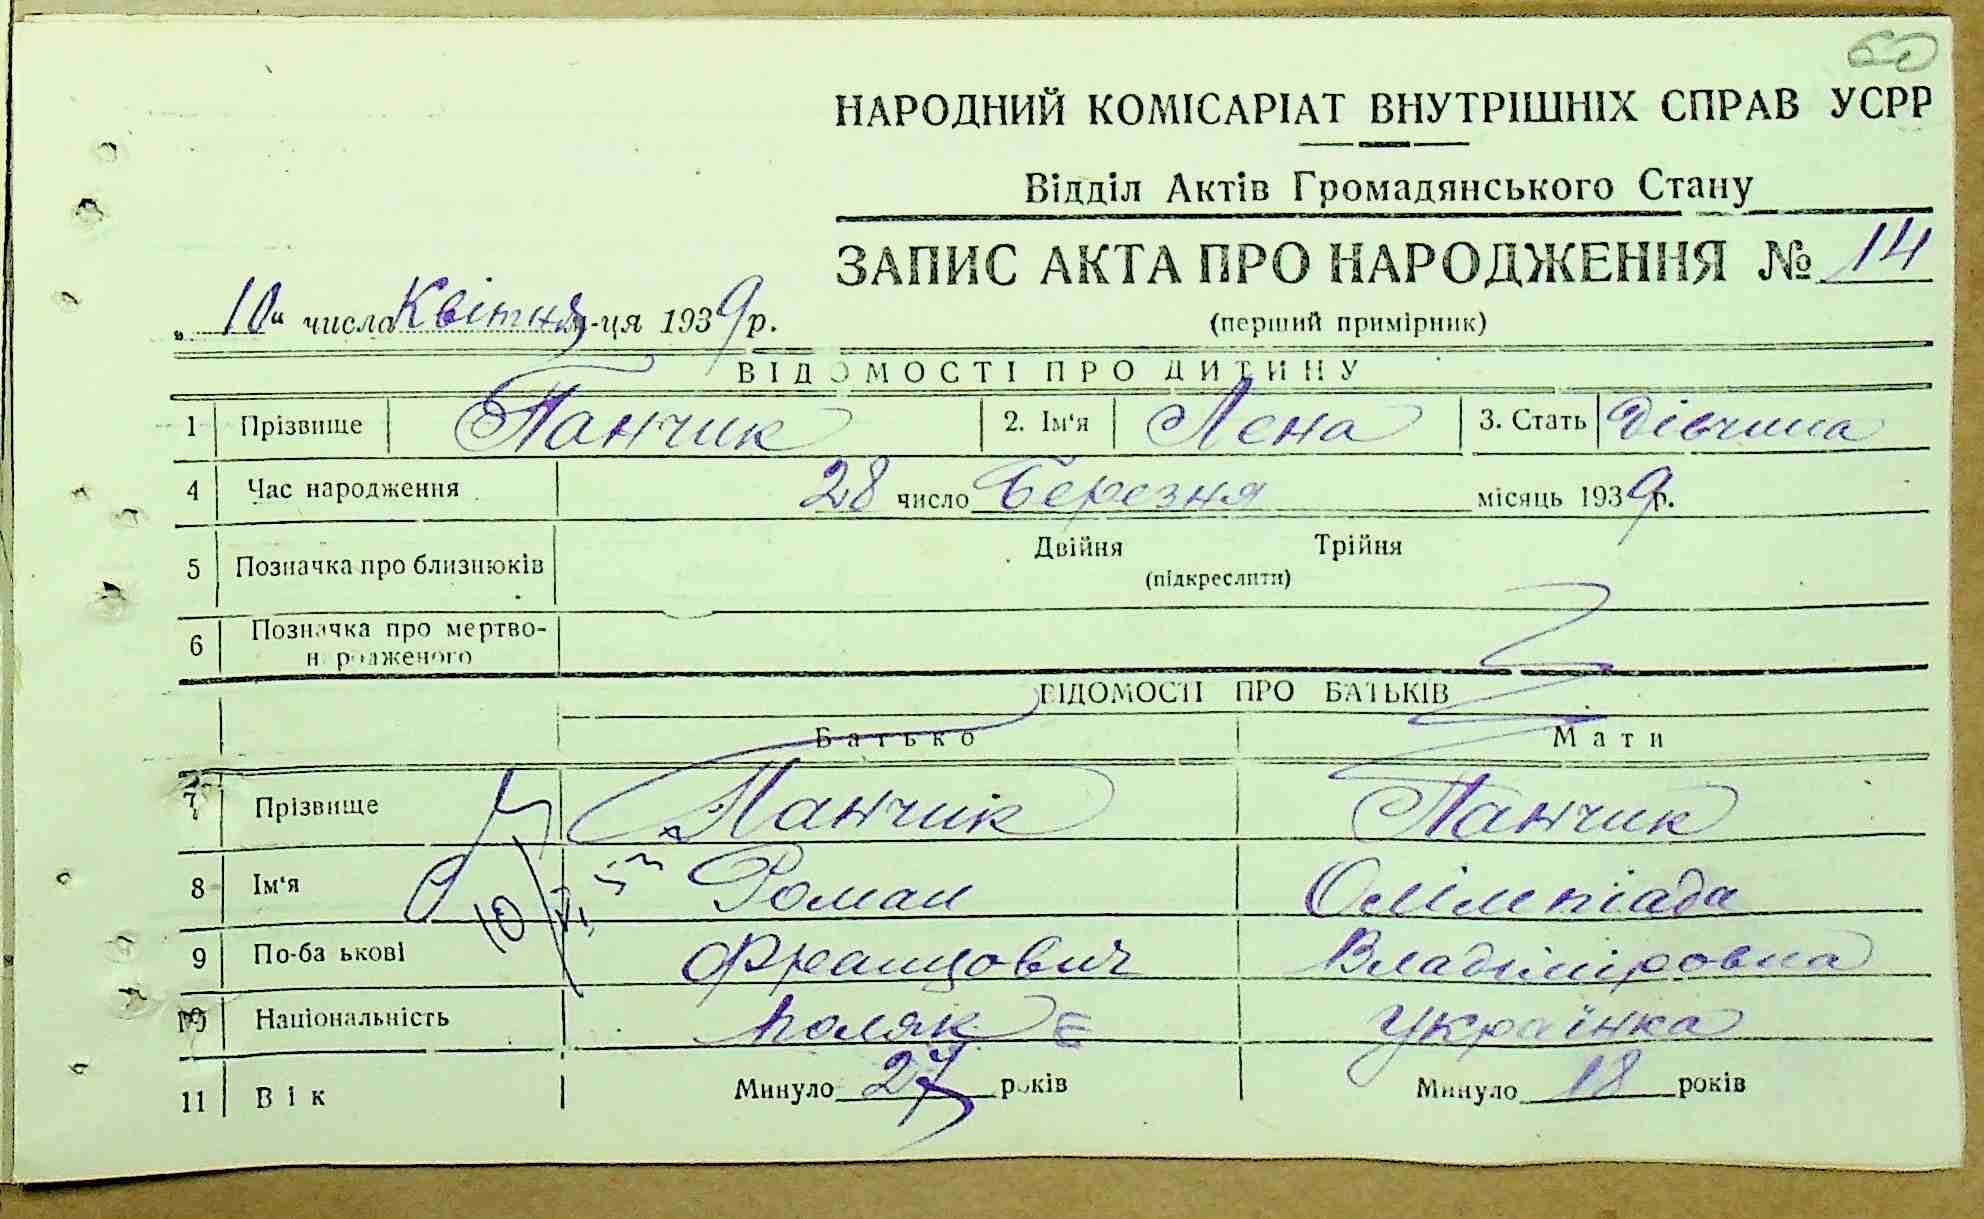 60
НАРОДНИЙ КОМІСАРІАТ ВНУТРІШНІХ СПРАВ УСРР
Відділ Актів Громадянського Стану
ЗАПИС АКТА ПРО НАРОДЖЕННЯ № 14
„10“ числа Квітня м-ця 1939 р.
(перший примірник)
ВІДОМОСТІ ПРО ДИТИНУ
1 Прізвище Панчик 2. Ім'я Лєна 3. Стать Дівчина
4 Час народження 28 число Березня місяць 1939 р.
5 Позначка про близнюків Двійня Трійня
(підкреслити)
6 Позначка про мертво-
народженого
ВІДОМОСТІ ПРО БАТЬКІВ
Батько Мати
7 Прізвище Панчик Панчик
8 Ім'я Роман Олімпіада
9 По-батькові Францович Владіміровна
10 Національність поляк Українка
11 Вік Минуло 27 років Минуло 18 років